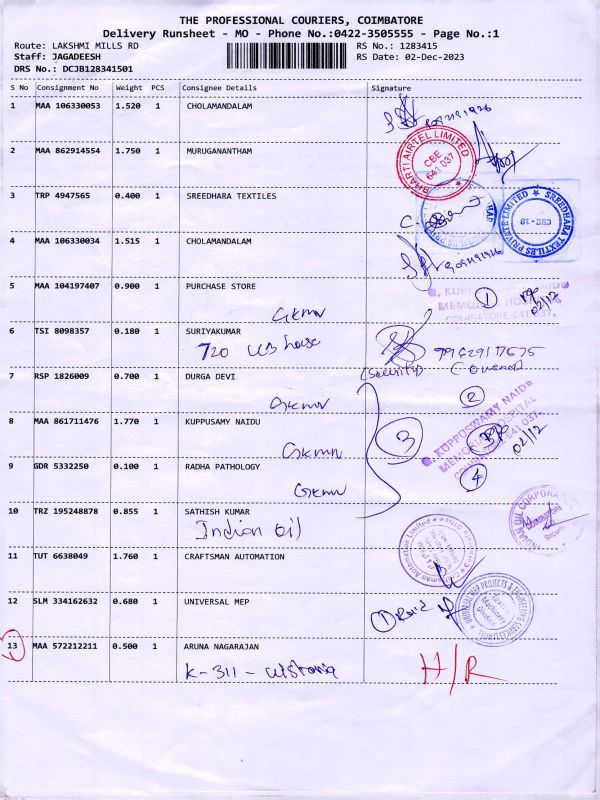 THE PROFESSIONAL COURIERS, COIMBATORE
Delivery Runsheet - MO - Phone No.:0422-3505555 - Page No.:1
Route: LAKSHMI MILLS RD
RS No.: 1283415
Staff: JAGADEESH
RS Date: 02-Dec-2023
DRS No.: DCJB128341501
S No Consignment No Weight PCS Consignee Details Signature
1 MAA 106330053 1.520 1 CHOLAMANDALAM
2 MAA 862914554 1.750 1 MURUGANANTHAM
BHARTI AIRTEL LIMITED
CBE
641 037
3 TRP 4947565 0.400 1 SREEDHARA TEXTILES
SREEDHARA TEXTILES PRIVATE LIMITED
CBE-18
4 MAA 106330034 1.515 1 CHOLAMANDALAM
5 MAA 104197407 0.900 1 PURCHASE STORE
GKMN
1
02/12
6 TSI 8098357 0.180 1 SURIYAKUMAR
720 house
(Security)
7 RSP 1826009 0.700 1 DURGA DEVI
GKMN
2
8 MAA 861711476 1.770 1 KUPPUSAMY NAIDU
GKMN
3
G. KUPPUSWAMY NAIDU
MEMORIAL HOSPITAL
COIMBATORE-641 037.
02/12
9 GDR 5332250 0.100 1 RADHA PATHOLOGY
GKMN
4
10 TRZ 195248878 0.855 1 SATHISH KUMAR
Indian Oil
INDIAN OIL CORPORATION
11 TUT 6638049 1.760 1 CRAFTSMAN AUTOMATION
Craftsman Automation Limited
12 SLM 334162632 0.680 1 UNIVERSAL MEP
1
UNIVERSAL MEP PROJECTS & ENGINEERING SERVICES LIMITED
Textile
Machinery
Division
13 MAA 572212211 0.500 1 ARUNA NAGARAJAN
K-311 - Wistoria
H/R